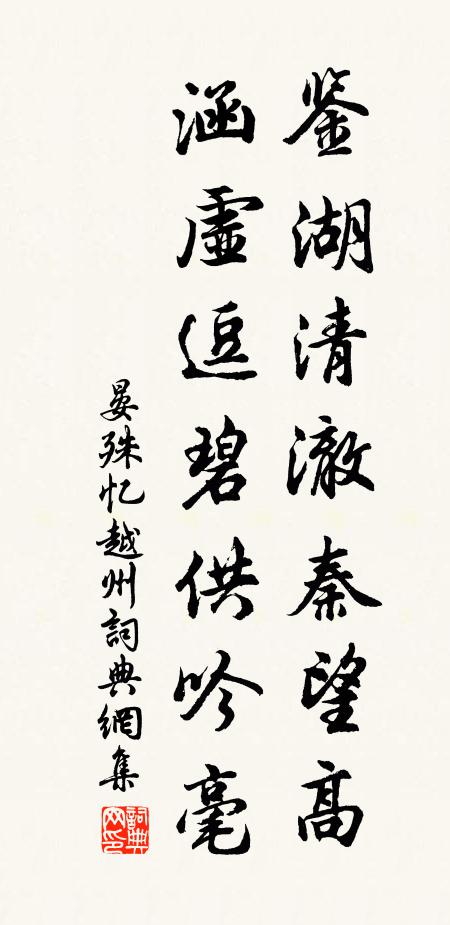 鉴湖清澈秦望高
涵虚逗碧供吟毫
晏殊忆越州詞典網集
詞典网印